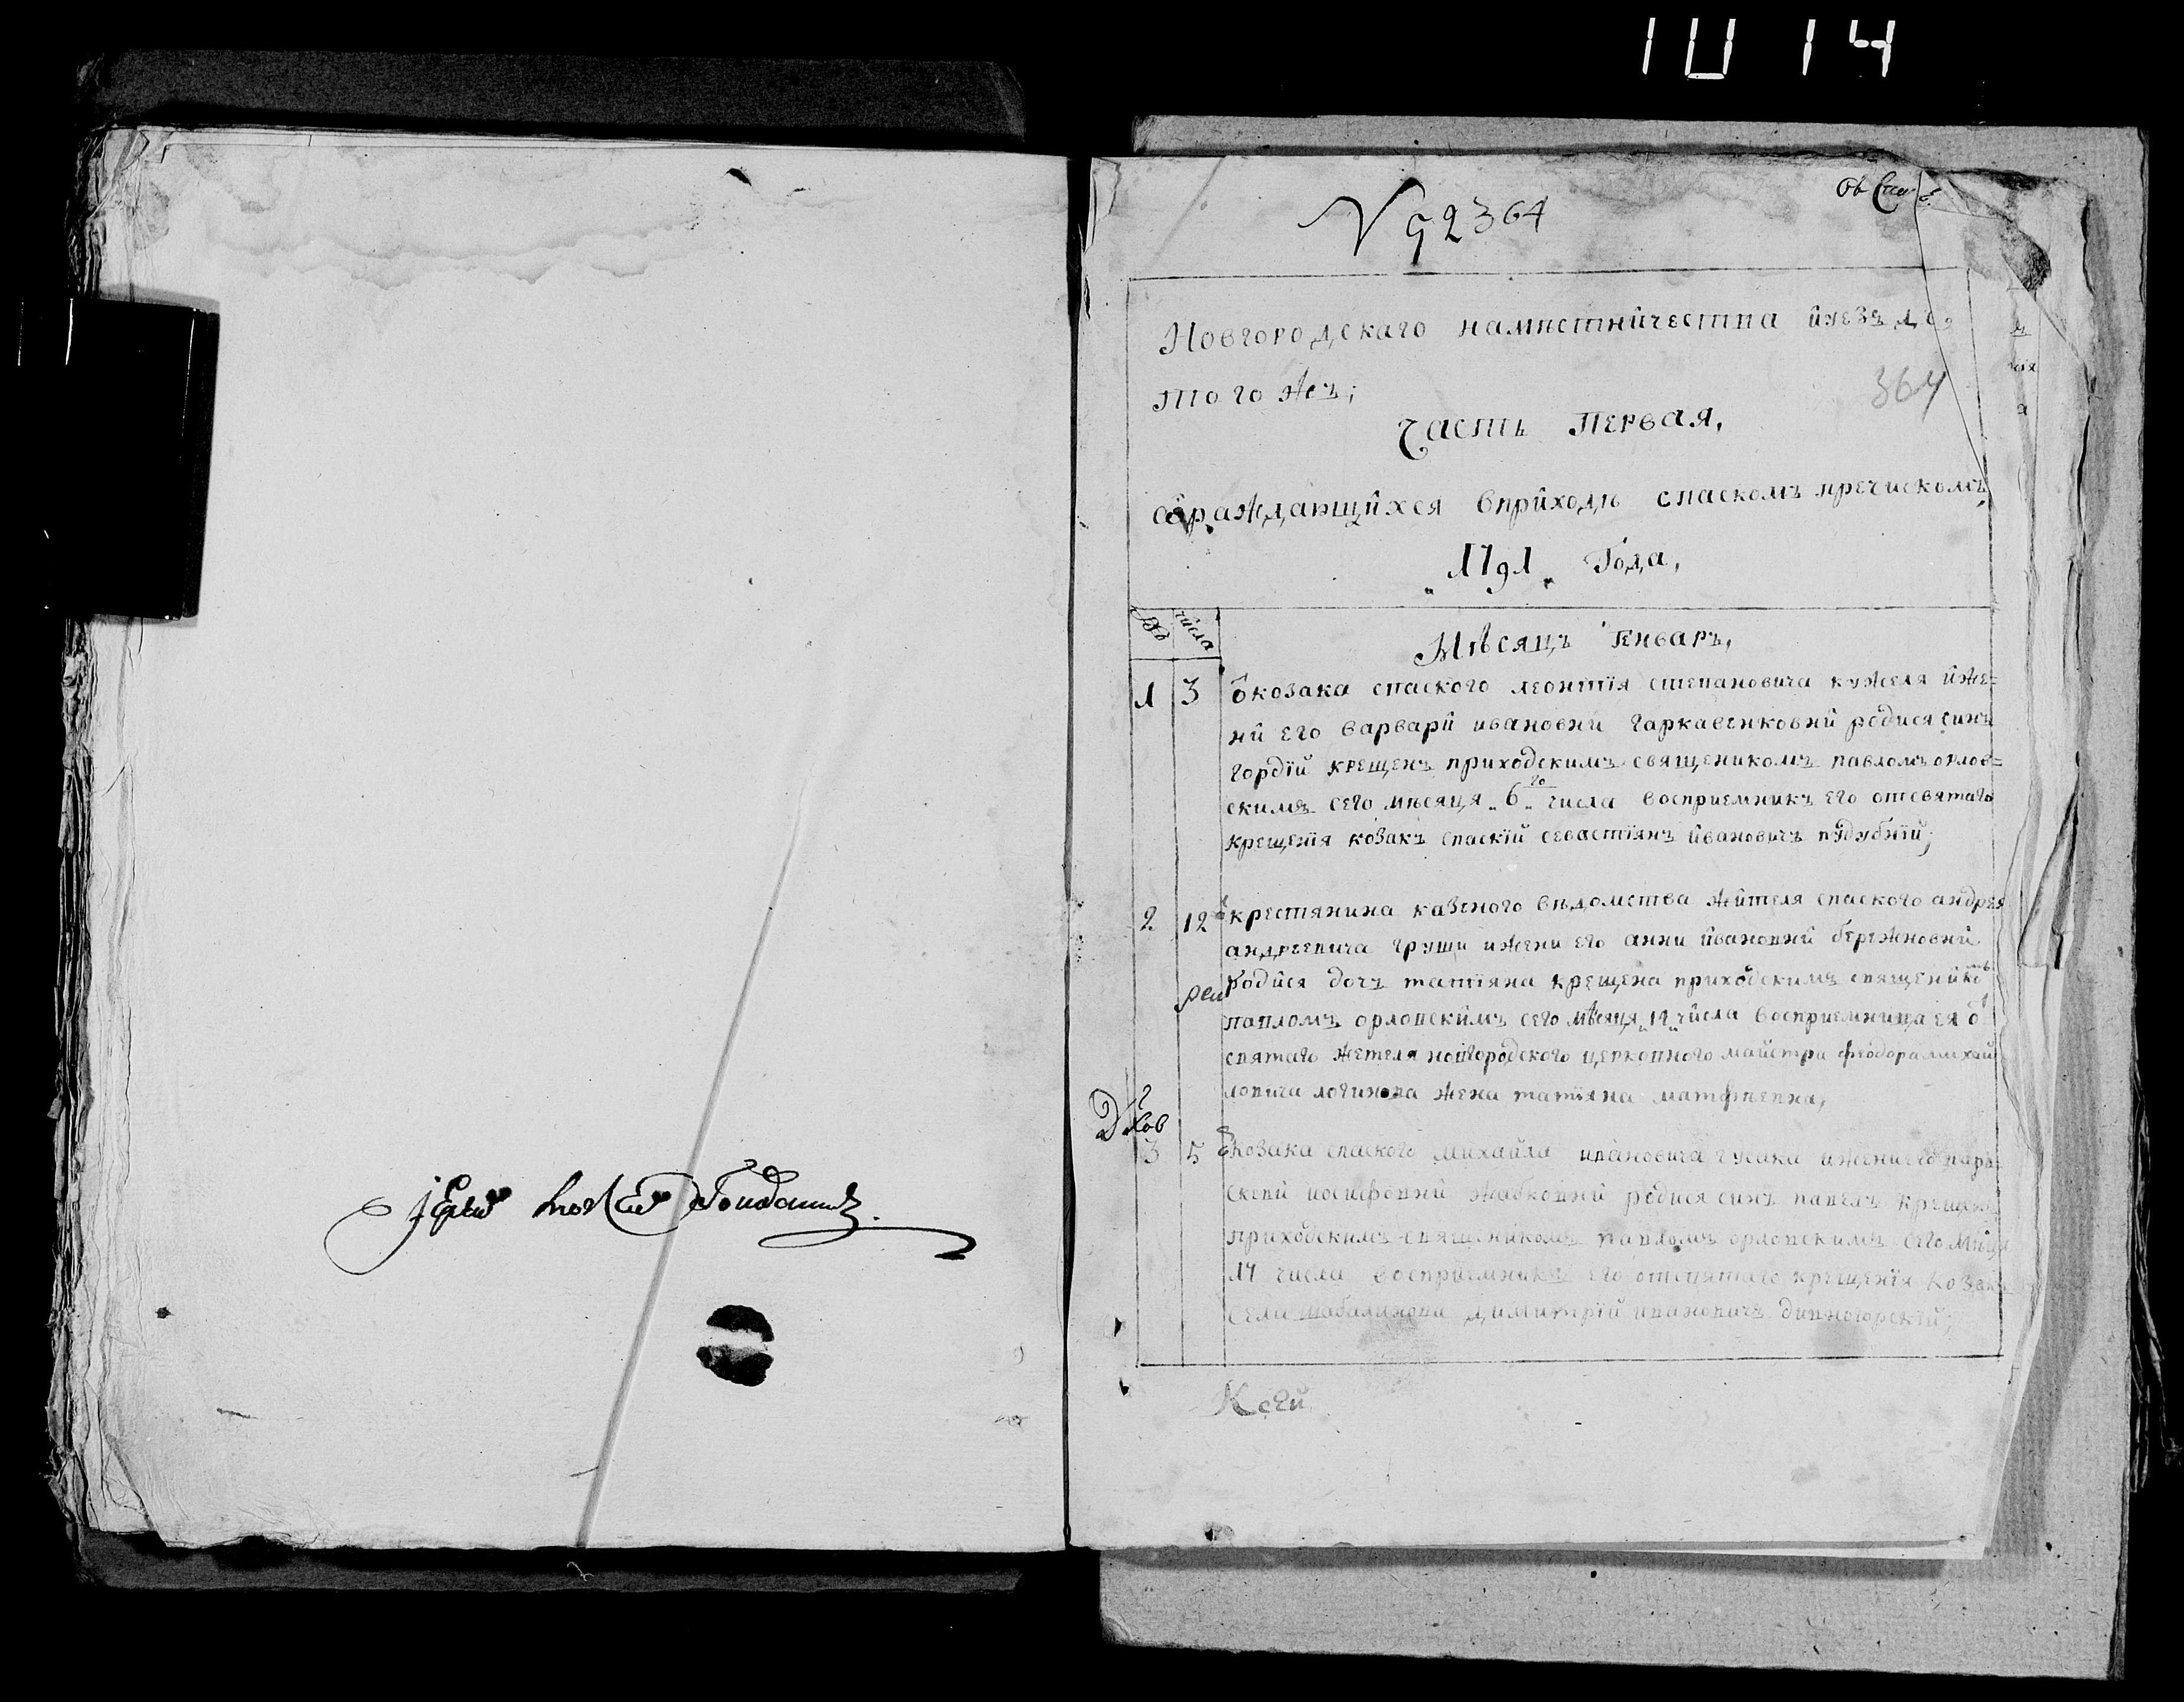 1014
№ 92 364
Новгородскаго наместничества
того жъ;
364
Часть Первая,
раждающихся вприходѣ спаскомъ пречискомъ,
„1791„ Года,
числа
Мѣсяцъ Генваръ,
1 3 ô козака спаского леонтїя степановича кужеля й же=
нй его варварй ивановни гаркавенковнй родися синъ
гордїй крещенъ приходскимъ священикомъ павломъ орлов=
скимъ сего мѣсяця „6„го числа восприемникъ его отсвятаго
крещенїя козакъ спаскїй севастїянъ йвановичъ пїдубнїй;
2 12 крестянина казеного вѣдомства жйтеля спаского андрея
андреевича груши ижени его анни йвановнй бережновнй
родйся дочъ татїяна крещена приходскимъ священико
павломъ орловскймъ сего мѣсяця „12„ чйсла восприемница ея ô
святаго жетеля новгородского церковного майстра феодора михай
ловича логинова жена татїяна матфеевна,
3 5 козака спаского михайла ивановича гусака ижени его пара=
скевй иосифовнй жабковнй родися синъ павелъ крещенъ
приходскимъ священикомъ павломъ орловскимъ сего мѣсця
14 числа восприемникъ его отсвятаго крещенїя козакъ
села шабалинова димитрїй ивановичъ дивногорскїй;